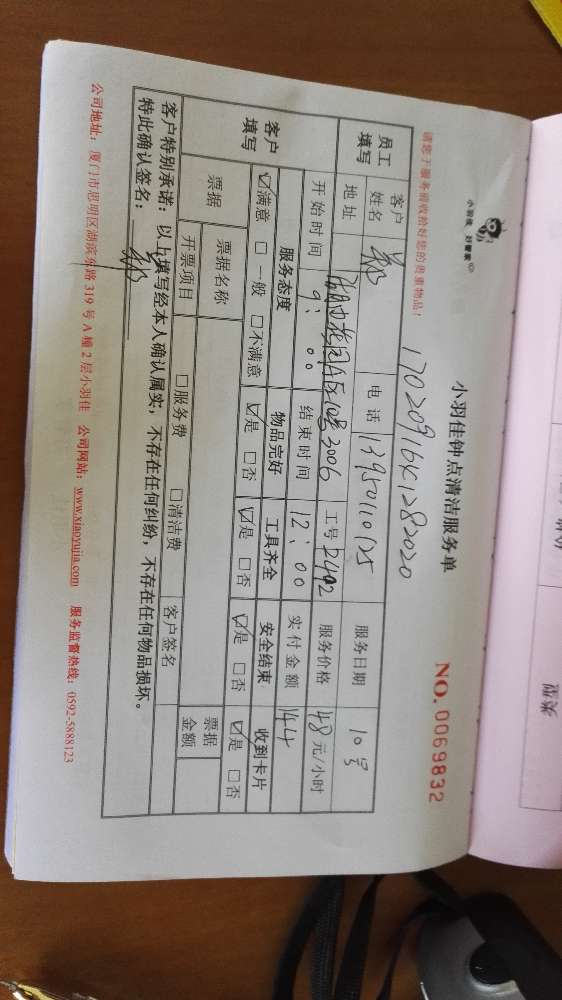 小羽佳 好管家
小羽佳钟点清洁服务单
NO.0069832
请您于服务前收拾好您的贵重物品!
员工填写
客户姓名 电话 13950110125 服务日期 10号
地址 花园A区 3006 工号 2402 服务价格 48元/小时
开始时间 9:00 结束时间 12:00 实付金额 144
客户填写
服务态度 物品完好 工具齐全 安全结束 收到卡片
☑满意 □一般 □不满意 ☑是 □否 ☑是 □否 ☑是 □否 ☑是 □否
票据 票据名称 票据金额
开票项目 □服务费 □清洁费 客户签名
客户特别承诺:以上填写经本人确认属实,不存在任何纠纷,不存在任何物品损坏。
特此确认签名:
公司地址:厦门市思明区湖滨东路319号A幢2层小羽佳 公司网站:www.xiaoyujia.com 服务监督热线:0592-5888123